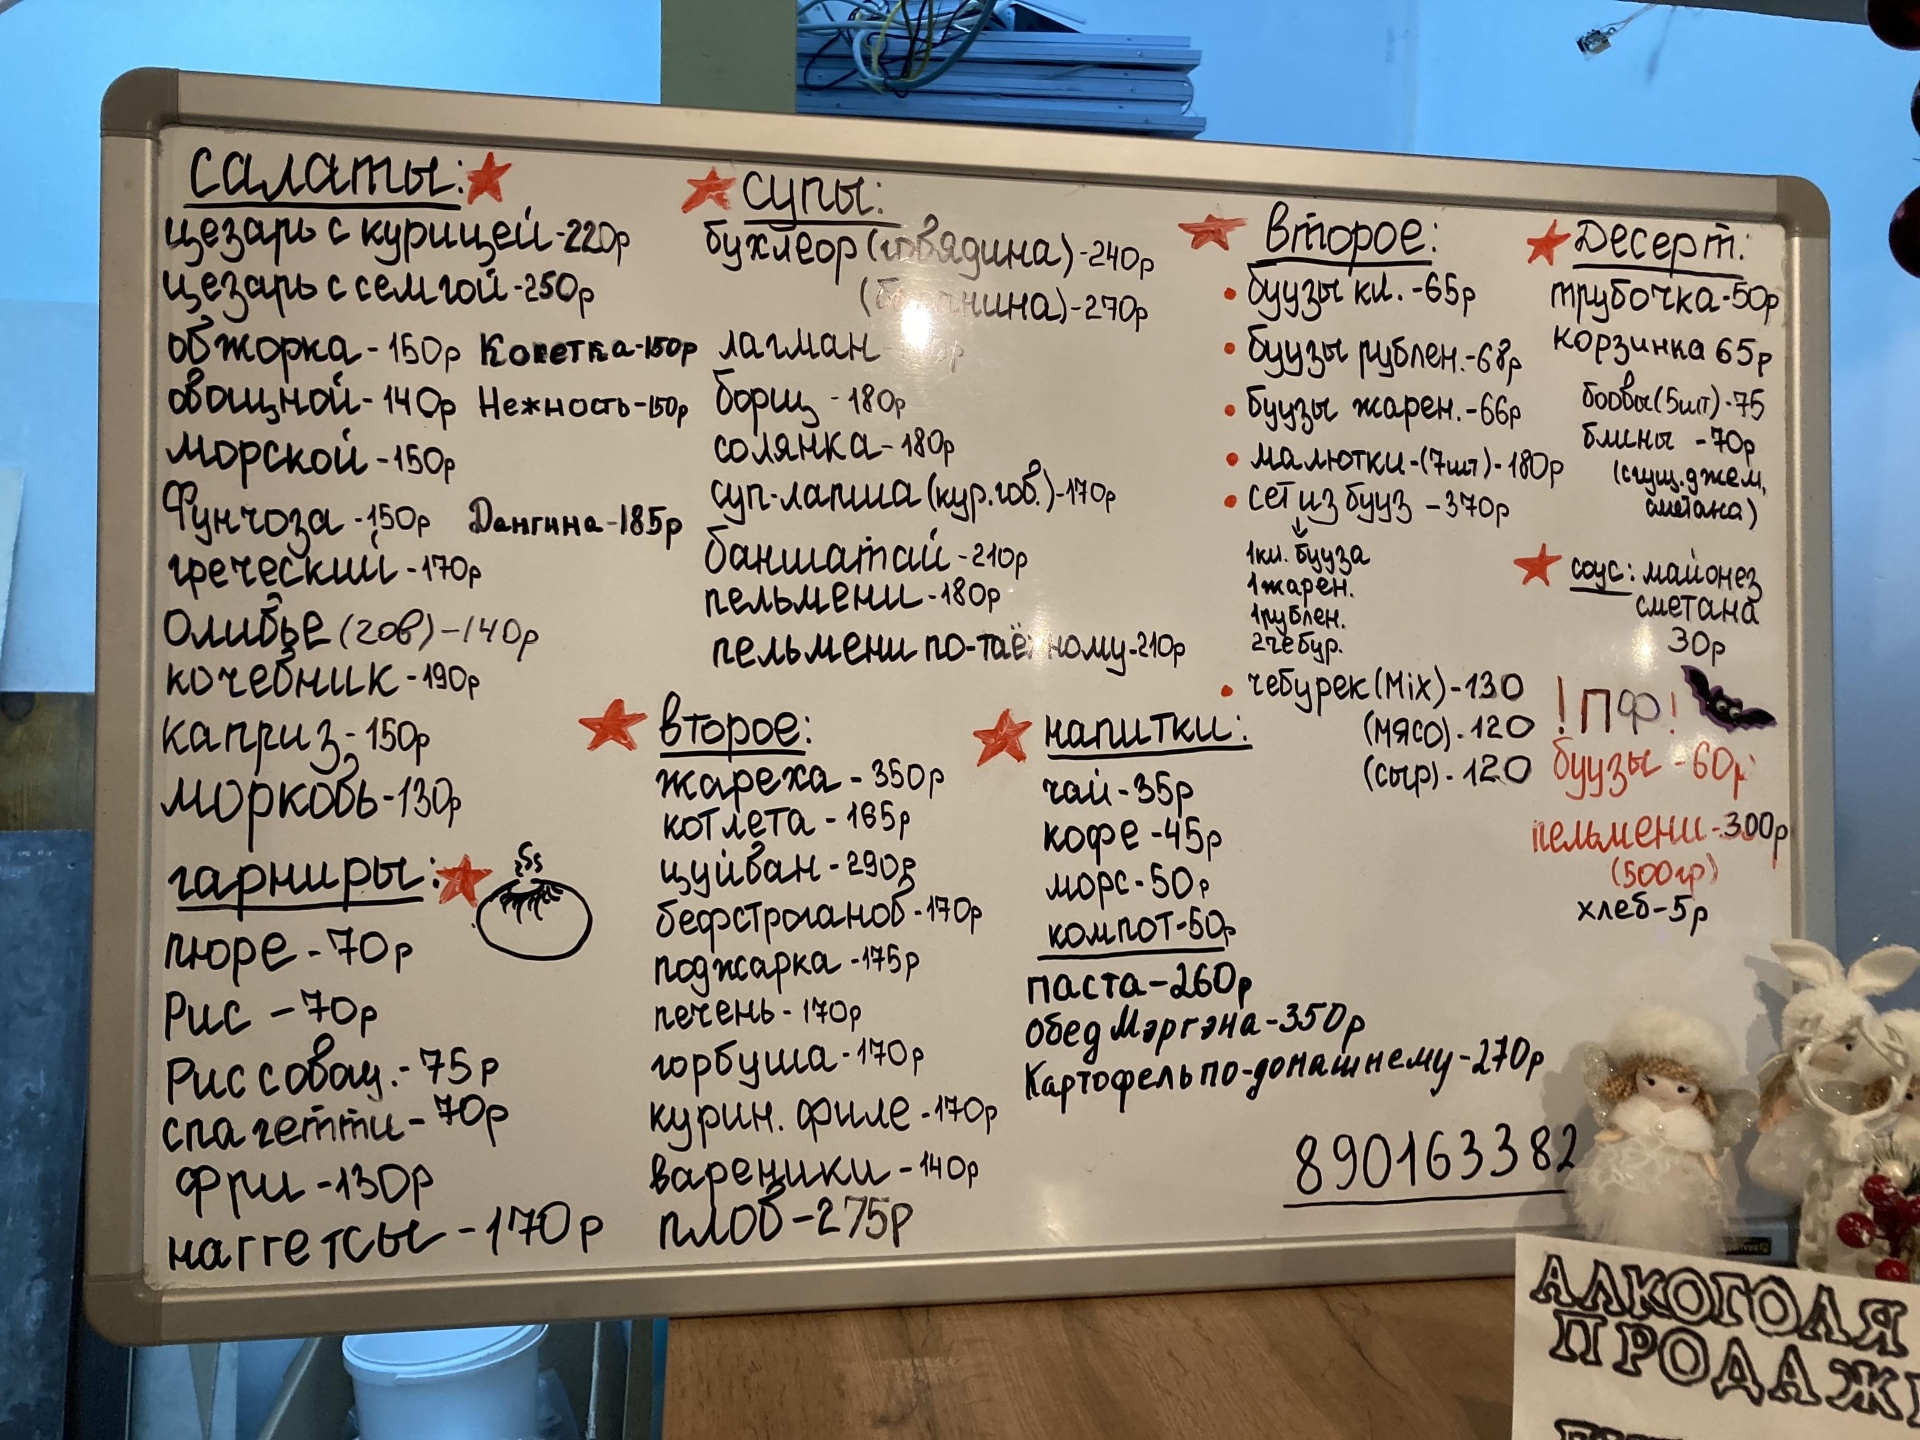 салаты:
цезарь с курицей-220р
цезарь с семгой-250р
обжорка-150р Кокетка-150р
овощной-140р Нежность-150р
морской-150р
Фунчоза-150р Дангина-185р
греческий-170р
Оливье (гов)-140р
кочевник-190р
каприз-150р
морковь-130р
гарниры:
пюре-70р
Рис-70р
Рис с овощ.-75р
спагетти-70р
фри-130р
наггетсы-170р
супы:
бухлеор (говядина)-240р
(баранина)-270р
лагман
борщ-180р
солянка-180р
суп-лапша (кур.гов.)-170р
баншатай-210р
пельмени-180р
пельмени по-таёжному-210р
второе:
жареха-350р
котлета-165р
цуйван-290р
бефстроганов-170р
поджарка-175р
печень-170р
горбуша-170р
курин. филе-170р
вареники-140р
плов-275р
напитки:
чай-35р
кофе-45р
морс-50р
компот-50р
паста-260р
обед Мэргэна-350р
Картофель по-домашнему-270р
89016 3382
второе:
буузы кл.-65р
буузы рублен.-68р
буузы жарен.-66р
малютки-(7шт)-180р
сет из бууз-370р
1кл. бууза
1жарен.
1рублен.
2чебур.
чебурек (Mix)-130
(мясо).120
(сыр).120
Десерт:
трубочка-50р
корзинка 65р
боовы (5шт)-75
блины-70р
(сгущ. джем,
сметана)
соус: майонез
сметана
30р
!ПФ!
буузы-60р
пельмени-300р
(500гр)
хлеб-5р
АЛКОГОЛЯ
ПРОДАЖ